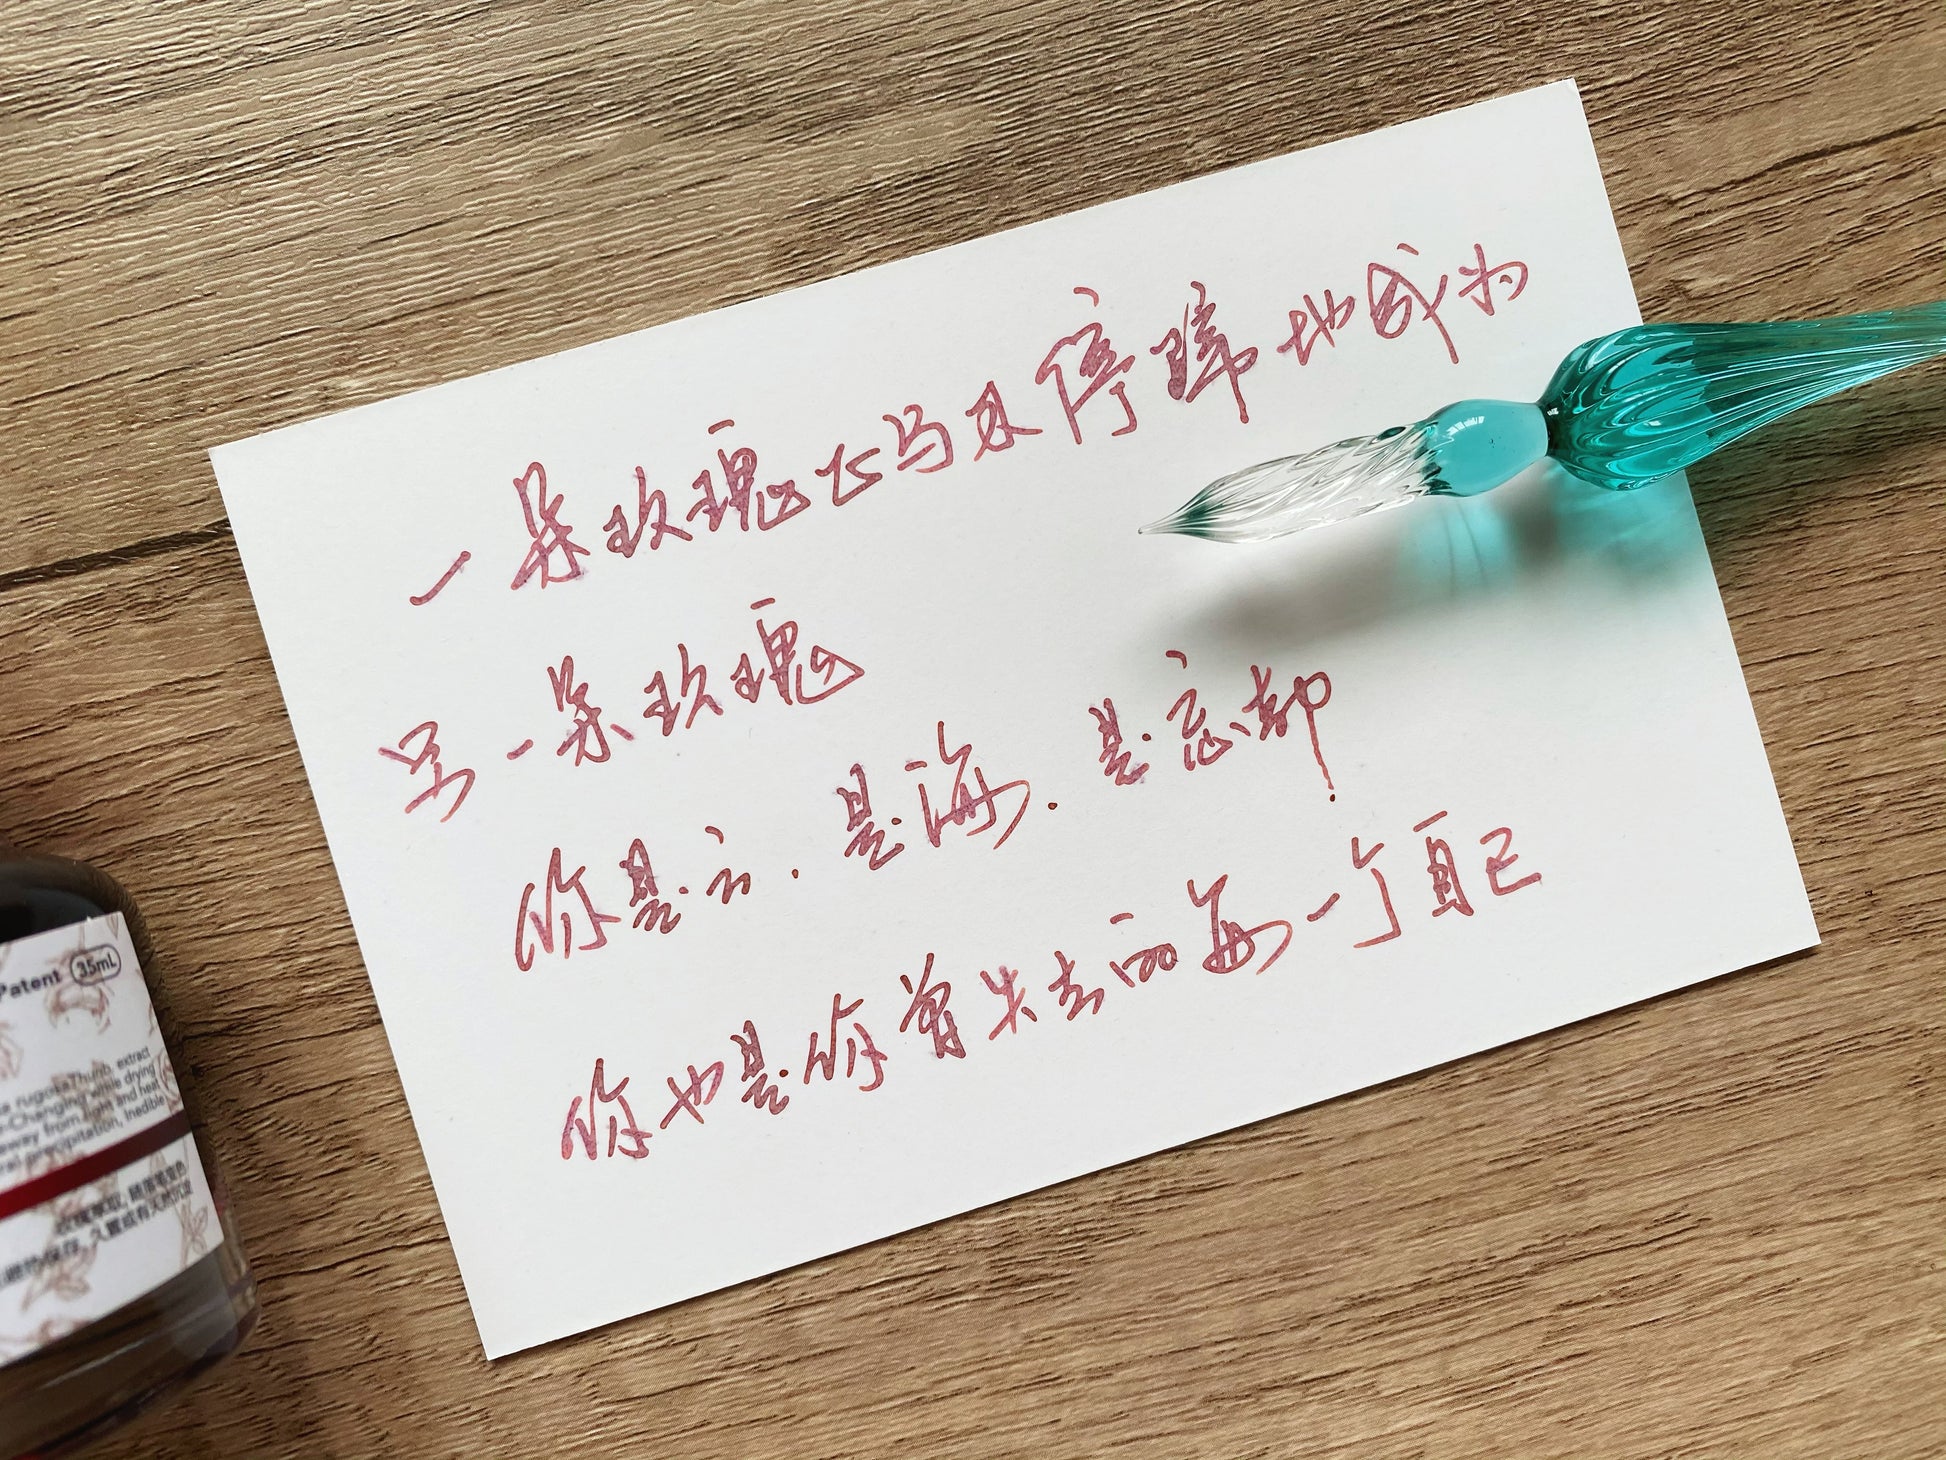 一朵玫瑰正马不停蹄地成为
另一朵玫瑰
你是云.是海.是忘却
你也是你曾失去的每一个自己
Patent 35mL
extract
-Changing while drying
away from light and heat
precipitation, Inedible
玫瑰萃取, 随着笔变色
避热保存, 久置或有天然沉淀